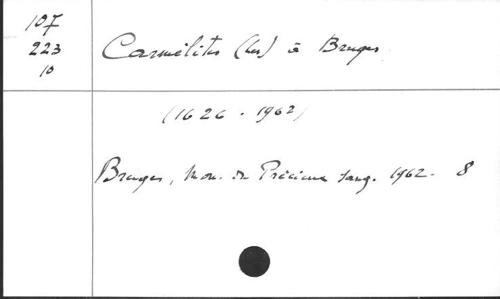 107
223
10
Carmélites (les) à Bruges
(1626 - 1962)
Bruges, Mon. du Précieux Sang. 1962. 8